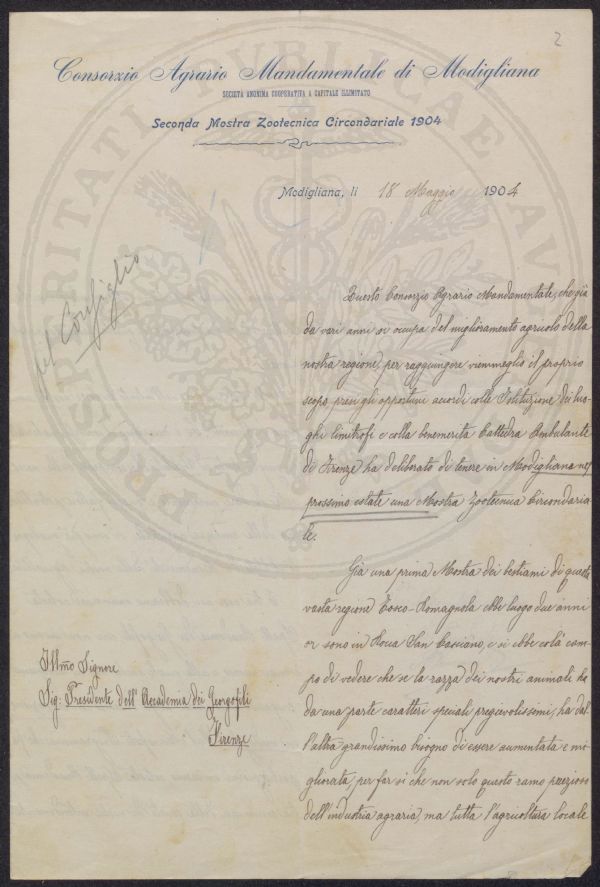 2
Consorzio Agrario Mandamentale di Modigliana
SOCIETÀ ANONIMA COOPERATIVA A CAPITALE ILLIMITATO
Seconda Mostra Zootecnica Circondariale 1904
Modigliana, li 18 Maggio 1904
Questo Consorzio Agrario Mandamentale, che già
da vari anni si occupa del miglioramento agricolo della
nostra regione, per raggiungere viemmeglio il proprio
scopo presi gli opportuni accordi colle Istituzione dei luo-
ghi limitrofi e colla benemerita Cattedra Ambulante
di Firenze ha deliberato di tenere in Modigliana nel
prossimo estate una Mostra Zootecnica Circondaria
le.
Già una prima Mostra dei bestiami di questa
vasta regione Tosco-Romagnola ebbe luogo due anni
or sono in Rocca San Casciano, e si ebbe colà cam-
po di vedere che se la razza dei nostri animali ha
da una parte caratteri speciali pregievolissimi, ha dal
l'altra grandissimo bisogno di essere aumentata e mi
gliorata, per far si che non solo questo ramo prezioso
dell'industria agraria, ma tutta l'agricoltura locale
del Consiglio
Illmo Signore
Sig: Presidente dell' Accademia dei Georgofili
Firenze
PROSPERITATI PVBLICAE AV